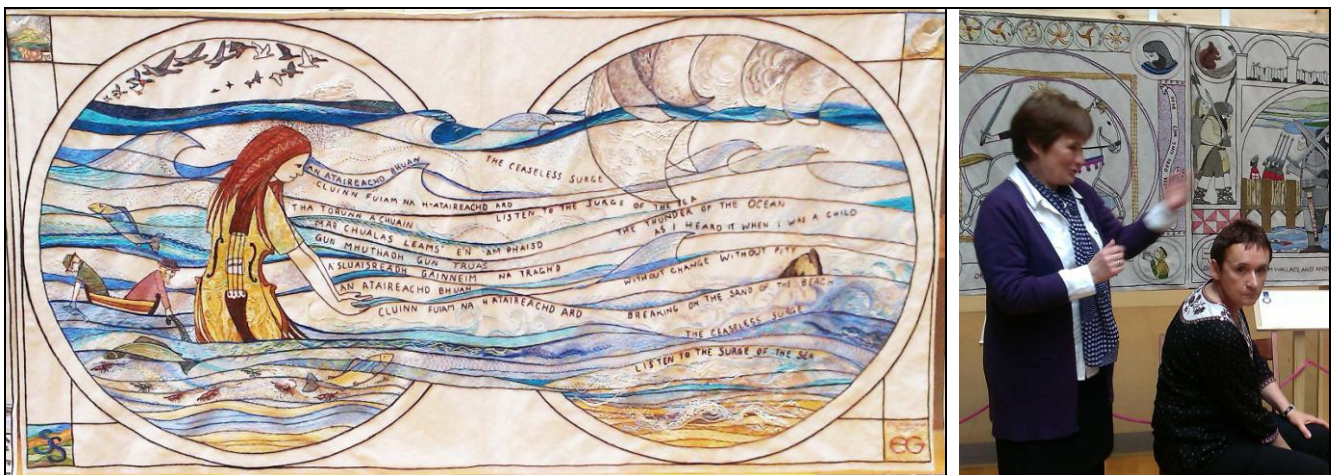 AN ATAIREACHD BHUAN
CLUINN FUIAM NA H-ATAIREACHD ARD
THA TORUNN A'CHUAIN
MAR CHUALAS LEAMS' E'N AM PHAISD
GUN MHUTHADH GUN TRUAS
A'SLUAISREADH GAINNEIM NA TRAGH'D
AN ATAIREACHD BHUAN
CLUINN FUIAM NA H ATAIREACHD ARD
THE CEASELESS SURGE
LISTEN TO THE SURGE OF THE SEA
THE THUNDER OF THE OCEAN
AS I HEARD IT WHEN I WAS A CHILD
WITHOUT CHANGE WITHOUT PITY
BREAKING ON THE SAND OF THE BEACH
THE CEASELESS SURGE
LISTEN TO THE SURGE OF THE SEA
JS
EG
WALLACE AND